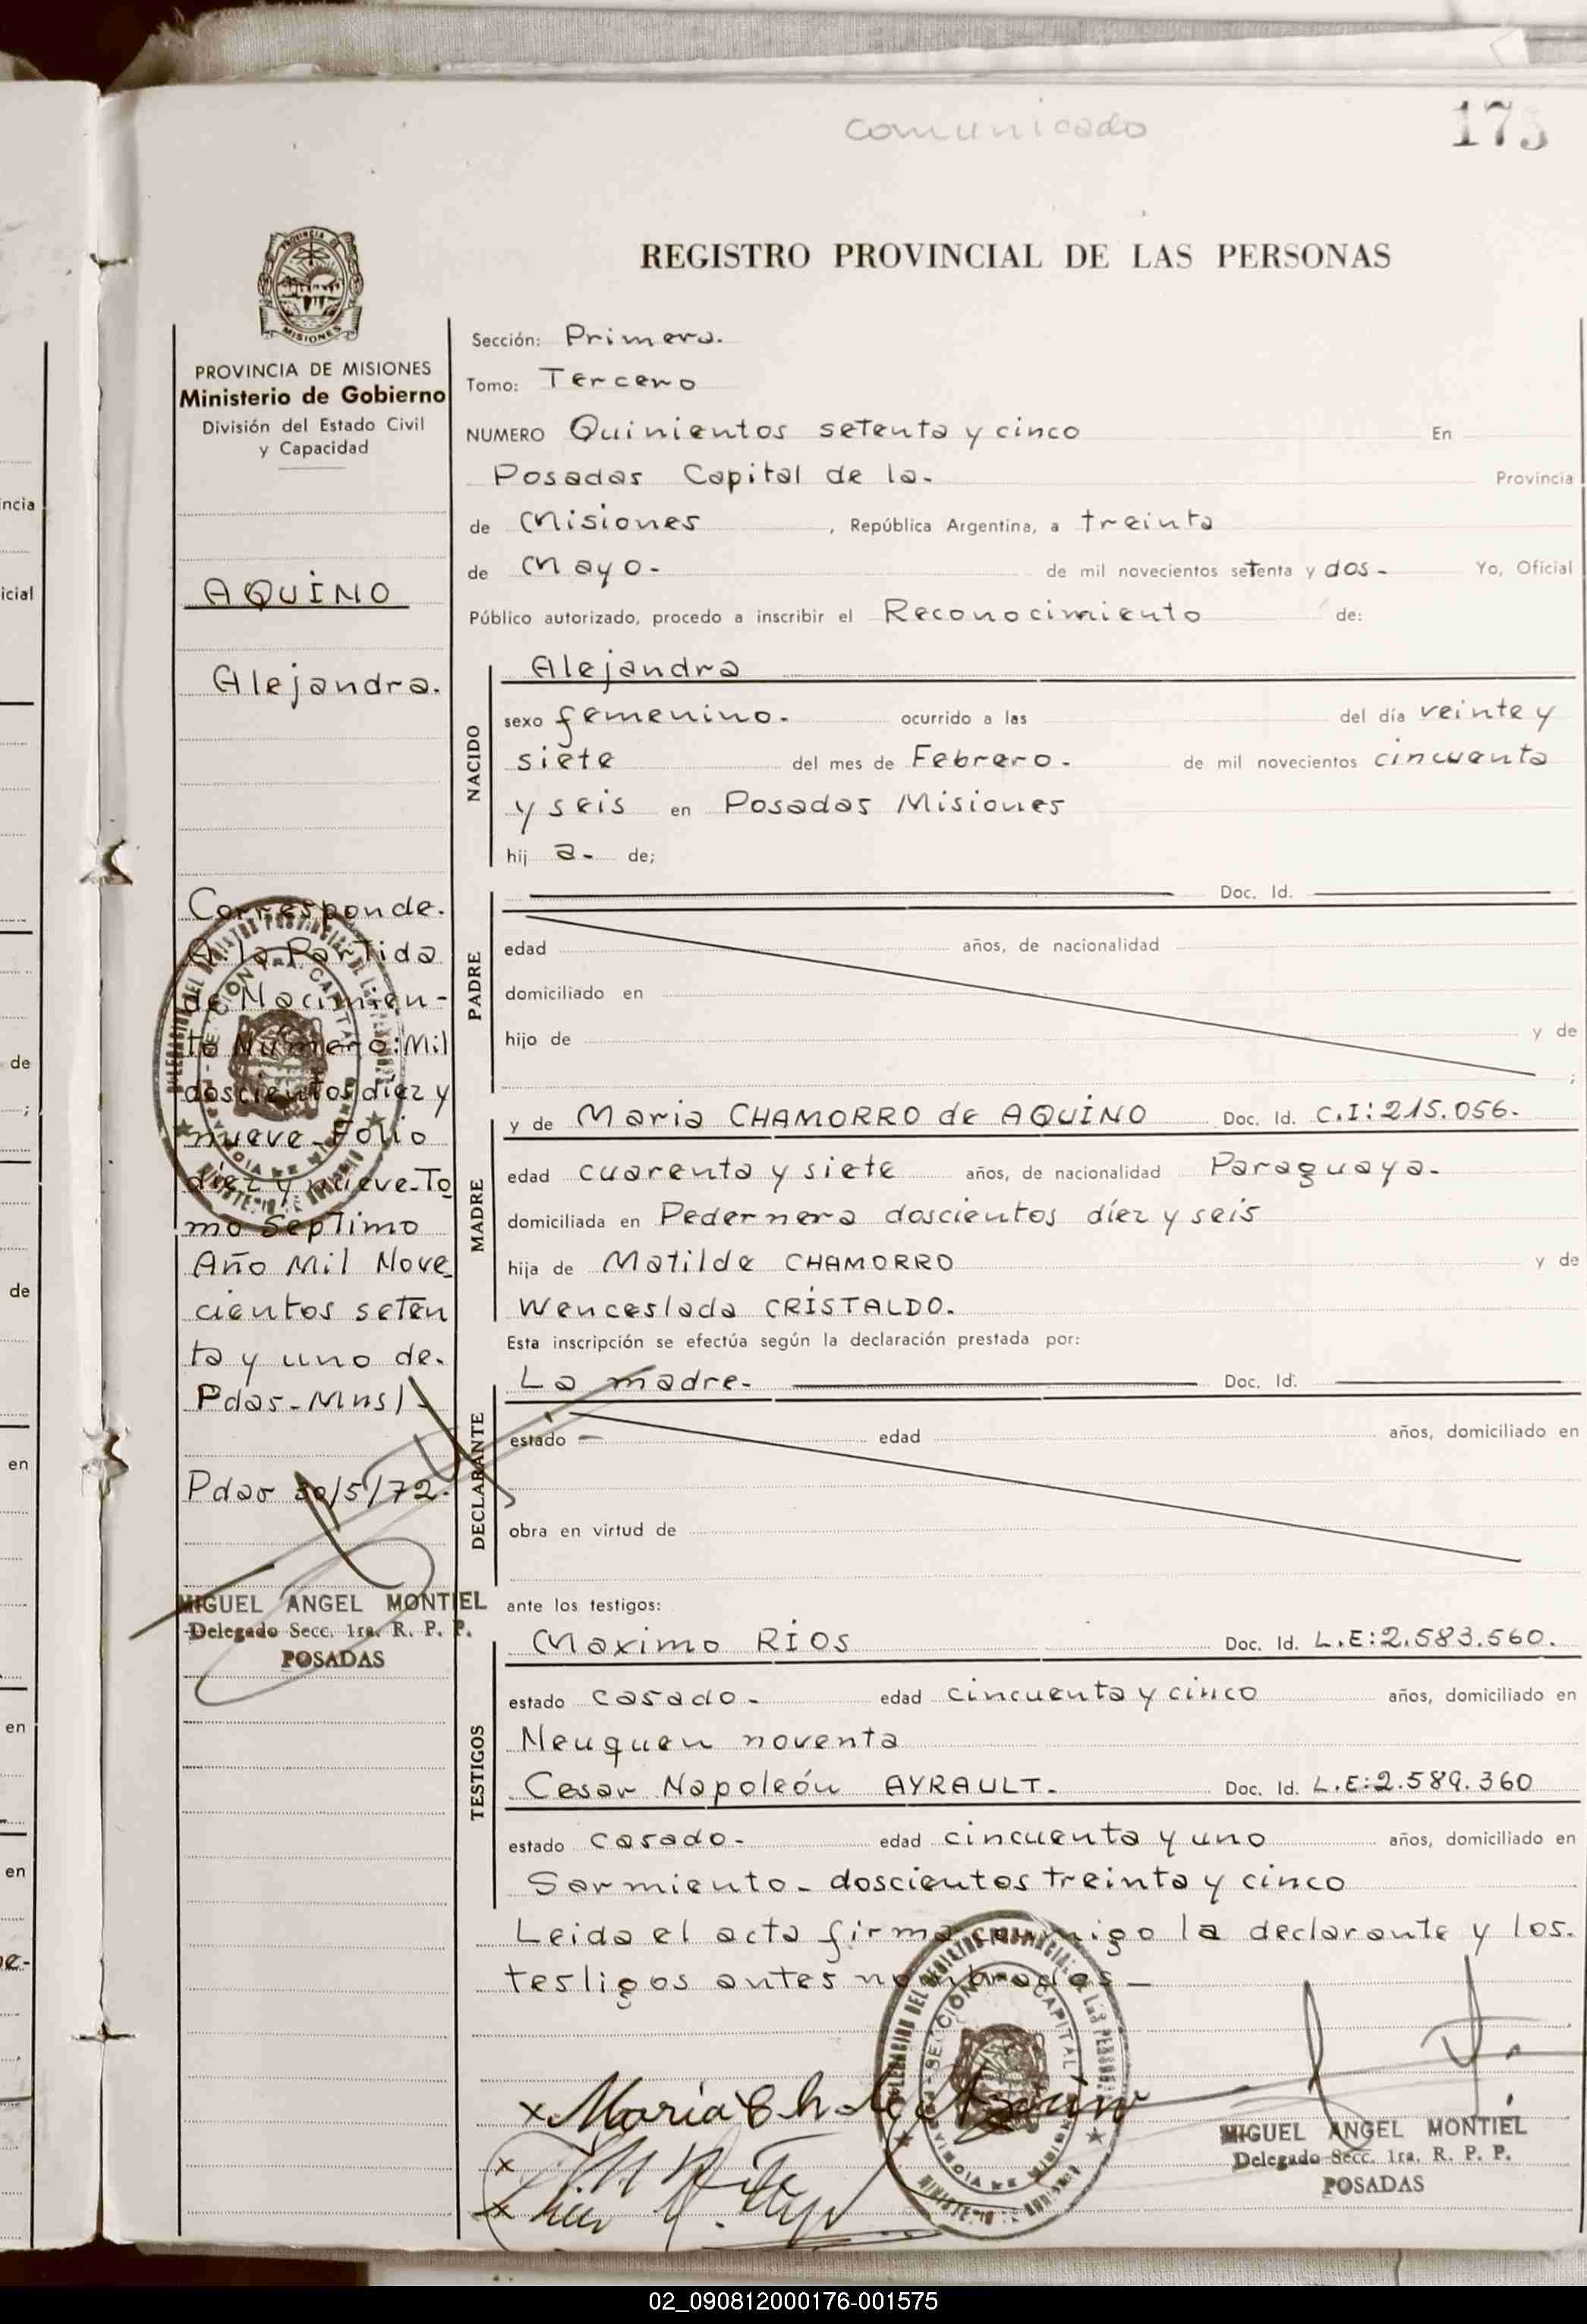 comunicado
175
REGISTRO PROVINCIAL DE LAS PERSONAS
PROVINCIA DE MISIONES
Ministerio de Gobierno
División del Estado Civil
y Capacidad
AQUINO
Alejandra.
Corresponde.
A la Partida
de Nacimien-
to Número: Mil
doscientos diez y
nueve - Folio
diez y nueve - To
mo Septimo
Año Mil Nove
cientos seten
ta y uno de.
Pdas - Mns/
Pdas 30/5/72.
MIGUEL ANGEL MONTIEL
Delegado Secc. 1ra. R. P. P.
POSADAS
Sección: Primera.
Tomo: Tercero
NUMERO Quinientos setenta y cinco En
Posadas Capital de la. Provincia
de Misiones , República Argentina, a treinta
de Mayo - de mil novecientos setenta y dos - Yo, Oficial
Público autorizado, procedo a inscribir el Reconocimiento de:
NACIDO
Alejandra
sexo femenino. ocurrido a las del día veinte y
siete del mes de Febrero. de mil novecientos cincuenta
y seis en Posadas Misiones
hij a. de;
PADRE
Doc. Id.
edad años, de nacionalidad
domiciliado en
hijo de y de
;
MADRE
y de Maria CHAMORRO de AQUINO Doc. Id. C.I: 215.056.
edad cuarenta y siete años, de nacionalidad Paraguaya.
domiciliada en Pedernera doscientos diez y seis
hija de Matilde CHAMORRO y de
Wenceslada CRISTALDO.
Esta inscripción se efectúa según la declaración prestada por:
DECLARANTE
La madre. Doc. Id.
estado edad años, domiciliado en
obra en virtud de
ante los testigos:
TESTIGOS
Maximo RIOS Doc. Id. L.E: 2.583.560.
estado casado. edad cincuenta y cinco años, domiciliado en
Neuquen noventa
Cesar Napoleón AYRAULT. Doc. Id. L.E: 2.589.360
estado casado. edad cincuenta y uno años, domiciliado en
Sarmiento - doscientos treinta y cinco
Leida el acta firma conmigo la declarante y los.
testigos antes nombrados -
x Maria Ch de Aquino
MIGUEL ANGEL MONTIEL
Delegado Secc. 1ra. R. P. P.
POSADAS
02_090812000176-001575